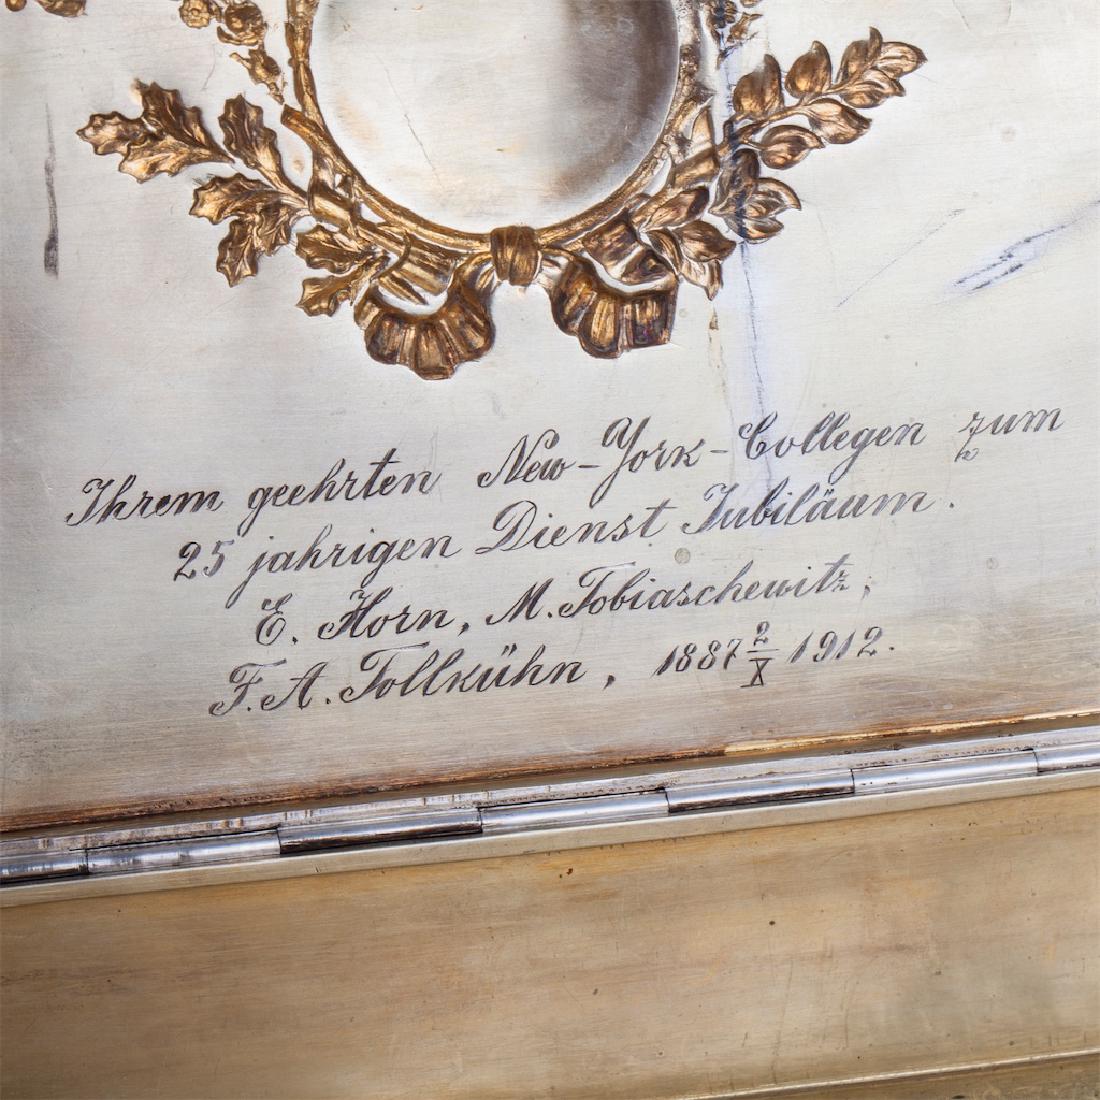 Ihrem geehrten New-York-Collegen zum
25 jahrigen Dienst Jubiläum.
E. Horn, M. Tobiaschewitz,
F. A. Tollkühn, 1887 2/X 1912.